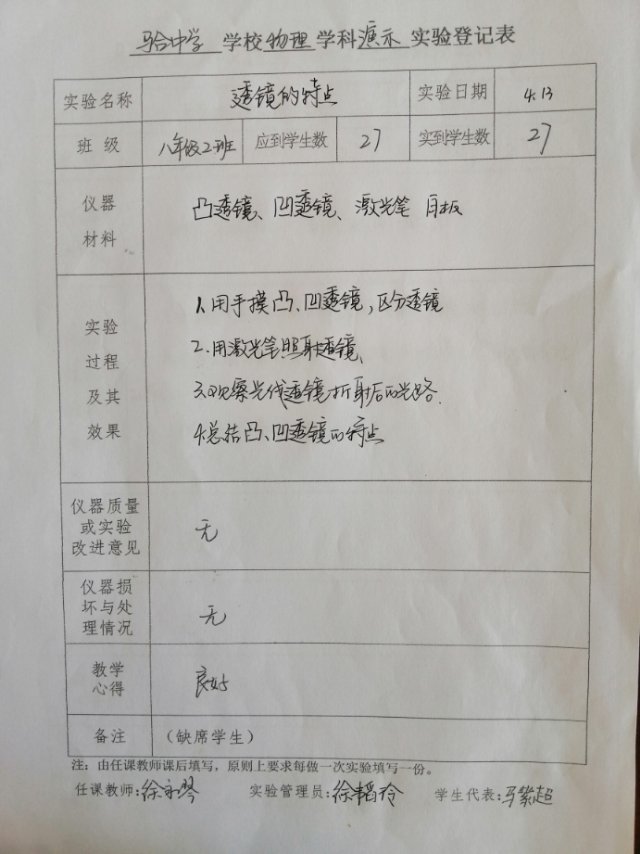 马合中学 学校 物理 学科 演示 实验登记表
实验名称 透镜的特点 实验日期 4.13
班 级 八年级2班 应到学生数 27 实到学生数 27
仪器
材料
凸透镜、凹透镜、激光笔 白板
实验
过程
及其
效果
1.用手摸凸、凹透镜,区分透镜
2.用激光笔照射透镜、
3.观察光线透镜折射后的光路.
4.总结凸、凹透镜的特点
仪器质量
或实验
改进意见
无
仪器损
坏与处
理情况
无
教学
心得
良好
备注 (缺席学生)
注:由任课教师课后填写,原则上要求每做一次实验填写一份。
任课教师: 实验管理员: 学生代表:马紫超